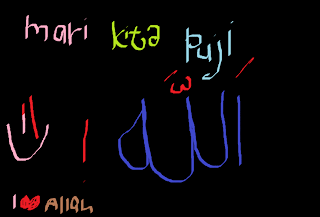 mari kita puji
اللّه
I ❤ Allah